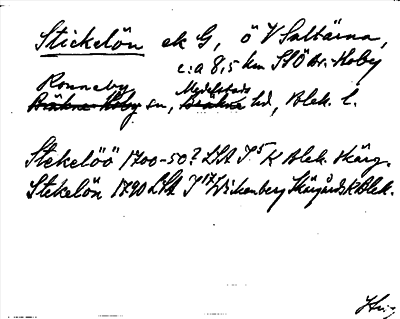 Stickelön ek G, ö V Saltärna,
c:a 8,5 km SSÖ Br.-Hoby
Ronneby Medelstads
Bräkne-Hoby sn, Bräkne hd, Blek. l.
Stekelöö 1700-50? LSA I⁵ K Blek. skärg.
Stekelön 1790 LSA I¹⁷ Wickenberg Skärgårds K Blek.